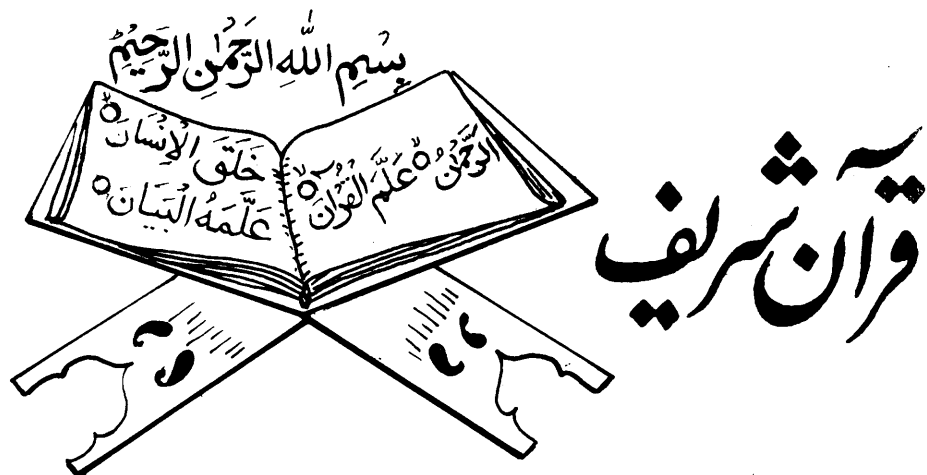 بِسْمِ اللهِ الرَّحْمٰنِ الرَّحِيْمِ
اَلرَّحْمٰنُ ۝ عَلَّمَ الْقُرْاٰنَ ۝
خَلَقَ الْاِنْسَانَ ۝
عَلَّمَهُ الْبَيَانَ ۝
قرآن شریف